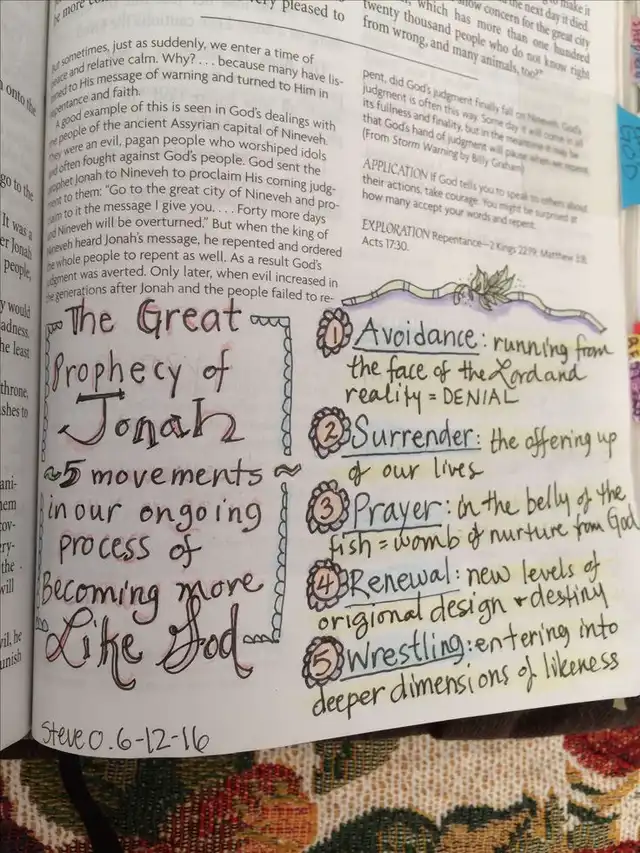 be more
very pleased to
But sometimes, just as suddenly, we enter a time of
peace and relative calm. Why? . . . because many have lis-
tened to His message of warning and turned to Him in
repentance and faith.
A good example of this is seen in God's dealings with
the people of the ancient Assyrian capital of Nineveh.
They were an evil, pagan people who worshiped idols
and often fought against God's people. God sent the
prophet Jonah to Nineveh to proclaim His coming judg-
ment to them: "Go to the great city of Nineveh and pro-
claim to it the message I give you. . . . Forty more days
and Nineveh will be overturned." But when the king of
Nineveh heard Jonah's message, he repented and ordered
the whole people to repent as well. As a result God's
judgment was averted. Only later, when evil increased in
the generations after Jonah and the people failed to re-
make it
the next day it died.
show concern for the great city
which has more than one hundred
twenty thousand people who do not know right
from wrong, and many animals, too?"
pent, did God's judgment finally fall on Nineveh. God's
judgment is often this way. Some day it will come in all
its fullness and finality, but in the meantime it may be
that God's hand of judgment will pause when we repent.
(From Storm Warning by Billy Graham)
APPLICATION If God tells you to speak to others about
their actions, take courage. You might be surprised at
how many accept your words and repent.
EXPLORATION Repentance—2 Kings 22:19; Matthew 3:8;
Acts 17:30.
The Great
Prophecy of
Jonah
~5 movements ~
in our ongoing
process of
Becoming more
Like God
Steve O. 6-12-16
1 Avoidance: running from
the face of the Lord and
reality = DENIAL
2 Surrender: the offering up
of our lives
3 Prayer: in the belly of the
fish = womb of nurture from God
4 Renewal: new levels of
origional design + destiny
5 Wrestling: entering into
deeper dimensions of likeness
onto the
go to the
It was a
er Jonah
people,
y would
adness.
he least
throne,
shes to
ani-
hem
cov-
ery-
the
will
vil, he
punish